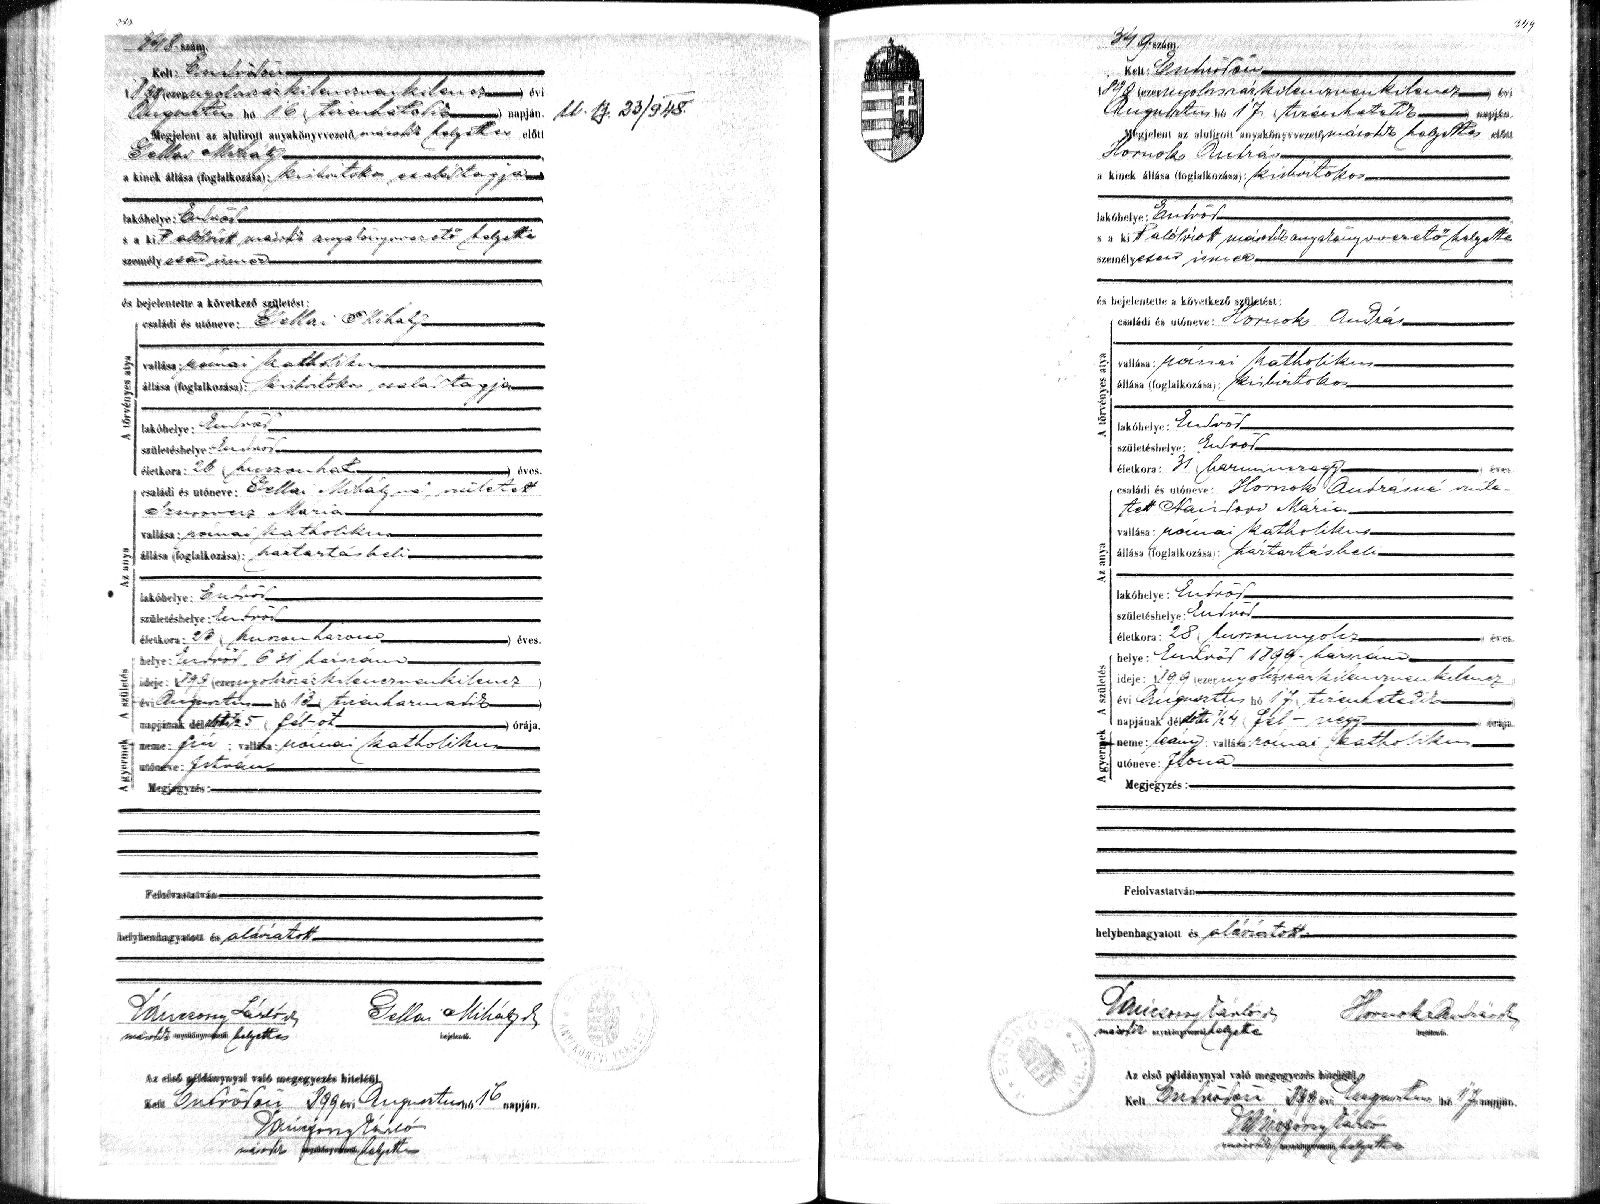 348. szám.
Kelt: Endrődön
1899 (ezernyolczszázkilenczvenkilencz) évi
Augusztus hó 16 (tizenhatodik) napján.
Megjelent az alulirott anyakönyvvezető második helyettes előtt
Gellai Mihály
a kinek állása (foglalkozása): kisbirtokos családtagja
lakóhelye: Endrőd
s a kit alólirott második anyakönyvvezető helyettes
személyesen ismer
és bejelentette a következő születést:
A törvényes atya
családi és utóneve: Gellai Mihály
vallása: római katholikus
állása (foglalkozása): kisbirtokos családtagja
lakóhelye: Endrőd
születéshelye: Endrőd
életkora: 26 (huszonhat) éves.
Az anya
családi és utóneve: Gellai Mihályné, született
Mária
vallása: római katholikus
állása (foglalkozása): háztartásbeli
lakóhelye: Endrőd
születéshelye: Endrőd
életkora: 23 (huszonhárom) éves.
A születés
helye: Endrőd, 631 házszám
ideje: 1899 (ezernyolczszázkilenczvenkilencz)
évi Augusztus hó 13 (tizenharmadik)
napjának dél 1/25 (fél-öt) órája.
A gyermek
neme: fiú; vallása: római katholikus
utóneve: István
Megjegyzés:
Felolvastatván
helybenhagyatott és aláíratott
László Gellai Mihály
második anyakönyvvezető helyettes bejelentő.
Az első példánynyal való megegyezés hiteléül.
Kelt Endrődön 899 évi Augusztus hó 16 napján.
László
második anyakönyvvezető helyettes
23/948.
349
349 szám.
Kelt: Endrődön
1899 (ezernyolczszázkilenczvenkilencz) évi
Augusztus hó 17 (tizenhetedik) napján.
Megjelent az alulirott anyakönyvvezető második helyettes előtt
Hornok András
a kinek állása (foglalkozása): kisbirtokos
lakóhelye: Endrőd
s a kit alólirott második anyakönyvvezető helyettes
személyesen ismer
és bejelentette a következő születést:
A törvényes atya
családi és utóneve: Hornok András
vallása: római katholikus
állása (foglalkozása): kisbirtokos
lakóhelye: Endrőd
születéshelye: Endrőd
életkora: 31 (harminczegy) éves.
Az anya
családi és utóneve: Hornok Andrásné szüle-
tett Mária
vallása: római katholikus
állása (foglalkozása): háztartásbeli
lakóhelye: Endrőd
születéshelye: Endrőd
életkora: 28 (huszonnyolcz) éves.
A születés
helye: Endrőd 1899. házszám
ideje: 1899 (ezernyolczszázkilenczvenkilencz)
évi Augusztus hó 17 (tizenhetedik)
napjának dél 1/24 (fél-négy) órája.
A gyermek
neme: leány; vallása: római katholikus
utóneve: Ilona
Megjegyzés:
Felolvastatván
helybenhagyatott és aláíratott
László Hornok András
második anyakönyvvezető helyettes bejelentő.
Az első példánynyal való megegyezés hiteléül.
Kelt Endrődön 899 évi Augusztus hó 17 napján.
László
második anyakönyvvezető helyettes